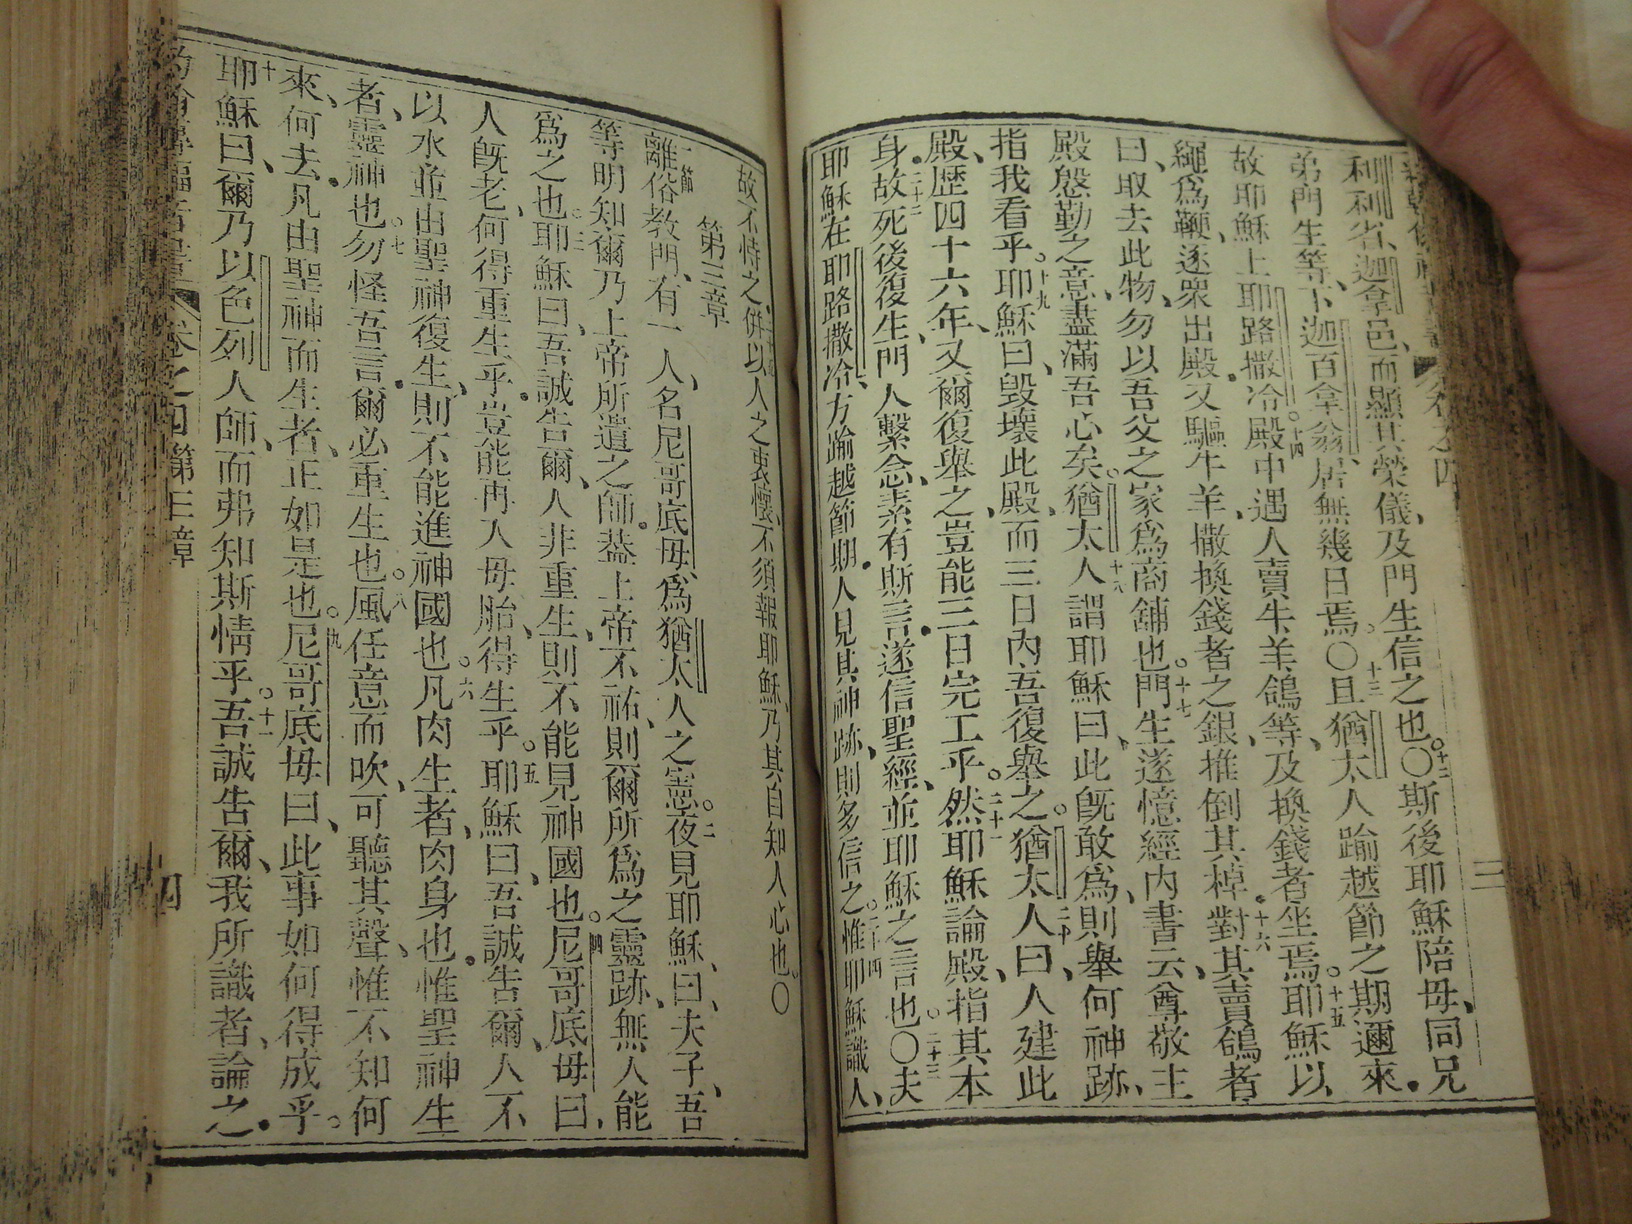 利利省、迦拿邑、而顯其榮儀、及門生信之也。十二〇斯後耶穌陪母、同兄
弟門生等、下迦百拿翁、居無幾日焉。〇十三且猶太人踰越節之期邇來.
故耶穌上耶路撒冷。十四殿中遇人賣牛羊鴿等、及換錢者坐焉。十五耶穌以
繩為鞭、逐眾出殿.又驅牛羊、撒換錢者之銀、推倒其棹.十六對其賣鴿者
曰、取去此物、勿以吾父之家為商舖也。十七門生遂憶經內書云、尊敬主
殿慇勤之意、盡滿吾心矣。十八猶太人謂耶穌曰、此旣敢為、則舉何神跡、
指我看乎。十九耶穌曰、毀壞此殿、而三日內吾復舉之。二十猶太人曰、人建此
殿、歷四十六年、又爾復舉之、豈能三日完工乎。二十一然耶穌論殿、指其本
身.二十二故死後復生、門人繫念、素有斯言.遂信聖經、並耶穌之言也。〇二十三夫
耶穌在耶路撒冷、方踰越節期.人見其神跡、則多信之。二十四惟耶穌識人、
故不恃之、二十五併以人之衷懷、不須報耶穌、乃其自知人心也。〇
第三章
一節離俗教門、有一人、名尼哥底母、為猶太人之憲。二夜見耶穌、曰、夫子、吾
等明知爾乃上帝所遣之師.蓋上帝不祐、則爾所為之靈跡、無人能
為之也。三耶穌曰、吾誠告爾、人非重生、則不能見神國也。四尼哥底母曰、
人旣老、何得重生乎.豈能再入母胎、得生乎。五耶穌曰、吾誠告爾、人不
以水並由聖神復生、則不能進神國也。六凡肉生者、肉身也.惟聖神生
者、靈神也。七勿怪吾言.爾必重生也。八風任意而吹、可聽其聲、惟不知何
來、何去.凡由聖神而生者、正如是也。九尼哥底母曰、此事如何得成乎。
十耶穌曰、爾乃以色列人師、而弗知斯情乎。十一吾誠告爾、我所識者、論之.
卷之四 第三章
四
三